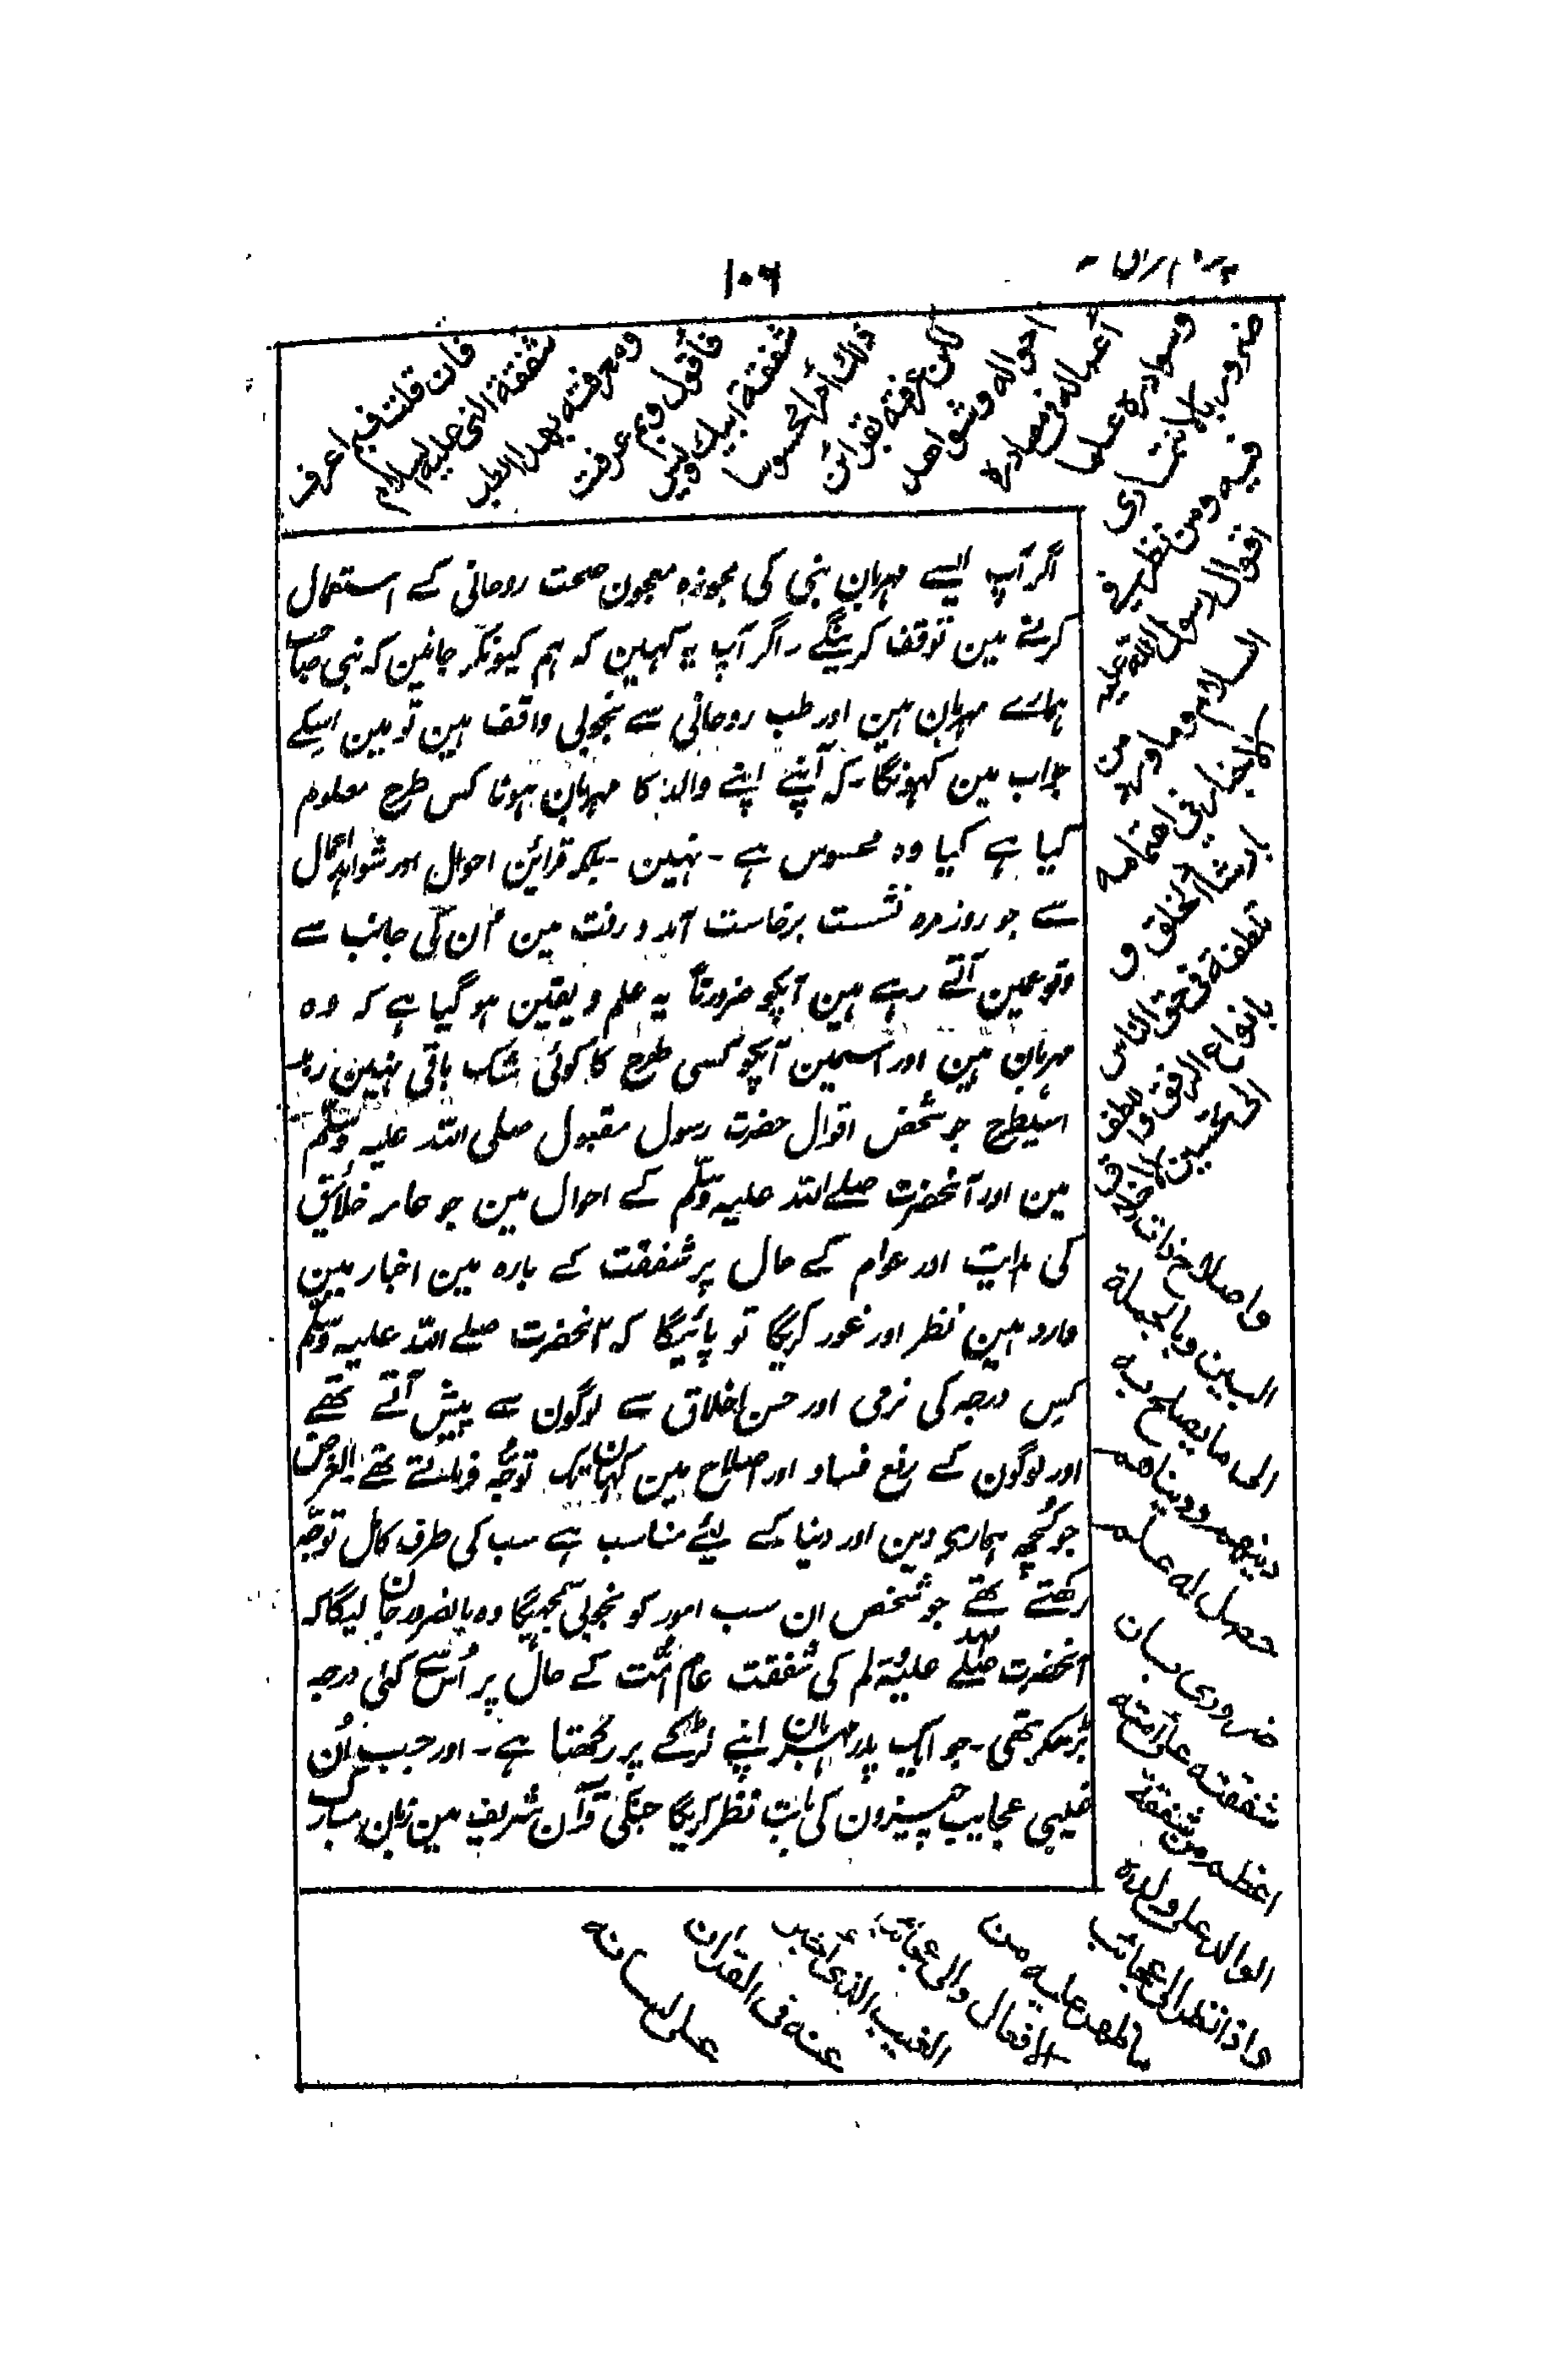 ۱۰۶
فان قلت فبم اعرف
شفقة النبی علیه السلام
ومعرفته بهذا الطب
فأقول وبم عرفت
شفقة ابیك ولیس
ذلك أمرا محسوسا
لكن عرفته بقرائن
احواله وشواهد
أعماله فی مصادره
وموارده علما
ضروریا لا تتماری
فیه ومن نظر فی
اقوال رسول الله علیه
السلام وما ورد من
الاخبار فی اهتمامه
بارشاد الخلق و
تلطفه فی حق الناس
بانواع الرفق واللطف
الی تحسین الاخلاق
واصلاح ذات
البین وبالجملة
الی ما یصلح به
دینهم ودنیاهم
حصل له علم
ضروری بان
شفقته علی أمته
اعظم من شفقة
الوالد علی ولده
واذا نظر الی عجائب
ما ظهر علیه من
الافعال والی عجائب
الغیب الذی أخبر
عنه فی القرآن
علی لسانه
اگر آپ ایسے مہربان نبی کی مجوزہ معجون صحت روحانی کے استعمال
کرنے مین توقف کرینگے ۔ اگر آپ یہ کہین کہ ہم کیونکر جانین کہ نبی صاحب
ہمارے مہربان ہین اور طب روحانی سے بخوبی واقف ہین تو مین اسکے
جواب مین کہونگا ۔ کہ آپنے اپنے والد کا مہربان ہونا کس طرح معلوم
کیا ہے کیا وہ محسوس ہے ۔ نہین ۔ بلکہ قرائن احوال اور شواہد اعمال
سے جو روزمرہ نشست برخاست آمد و رفت مین اُن کی جانب سے
وقوعمین آتے رہے ہین آپکو ضرورتاً یہ علم و یقین ہو گیا ہے کہ وہ
مہربان ہین اور اسمین آپکو کسی طرح کا کوئی شک باقی نہین رہا
اسیطرح جو شخص اقوال حضرت رسول مقبول صلی اللہ علیہ وسلّم
مین اور آنحضرت صلے اللہ علیہ وسلّم کے احوال مین جو عامہ خلائق
کی ہدایت اور عوام کے حال پر شفقت کے بارہ مین اخبار مین
وارد ہین نظر اور غور کریگا تو پائیگا کہ آنحضرت صلے اللہ علیہ وسلّم
کس درجہ کی نرمی اور حسن اخلاق سے لوگون سے پیش آتے تھے
اور لوگون کے رفع فساد اور اصلاح مین کہان تک توجّہ فرماتے تھے الغرض
جو کُچھ ہماری دین اور دنیا کے لیئے مناسب ہے سب کی طرف کامل توجّہ
رکھتے تھے جو شخص ان سب امور کو بخوبی سمجھیگا وہ بالضرور جان لیگا کہ
آنحضرت صلے اللہ علیہ وسلم کی شفقت عام اُمّت کے حال پر اُس سے کئی درجہ
بڑھکر تھی ۔ جو ایک پدر مہربان اپنے لڑکے پر رکھتا ہے ۔ اور جب اُن
غیبی عجایب چیزون کی بابت نظر کریگا جنکی قرآن شریف مین زبان مبارک